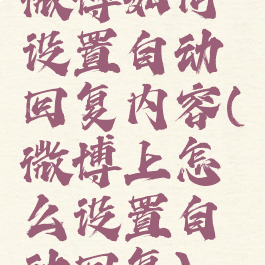 微博如何
设置自动
回复内容(
微博上怎
么设置自
动回复)